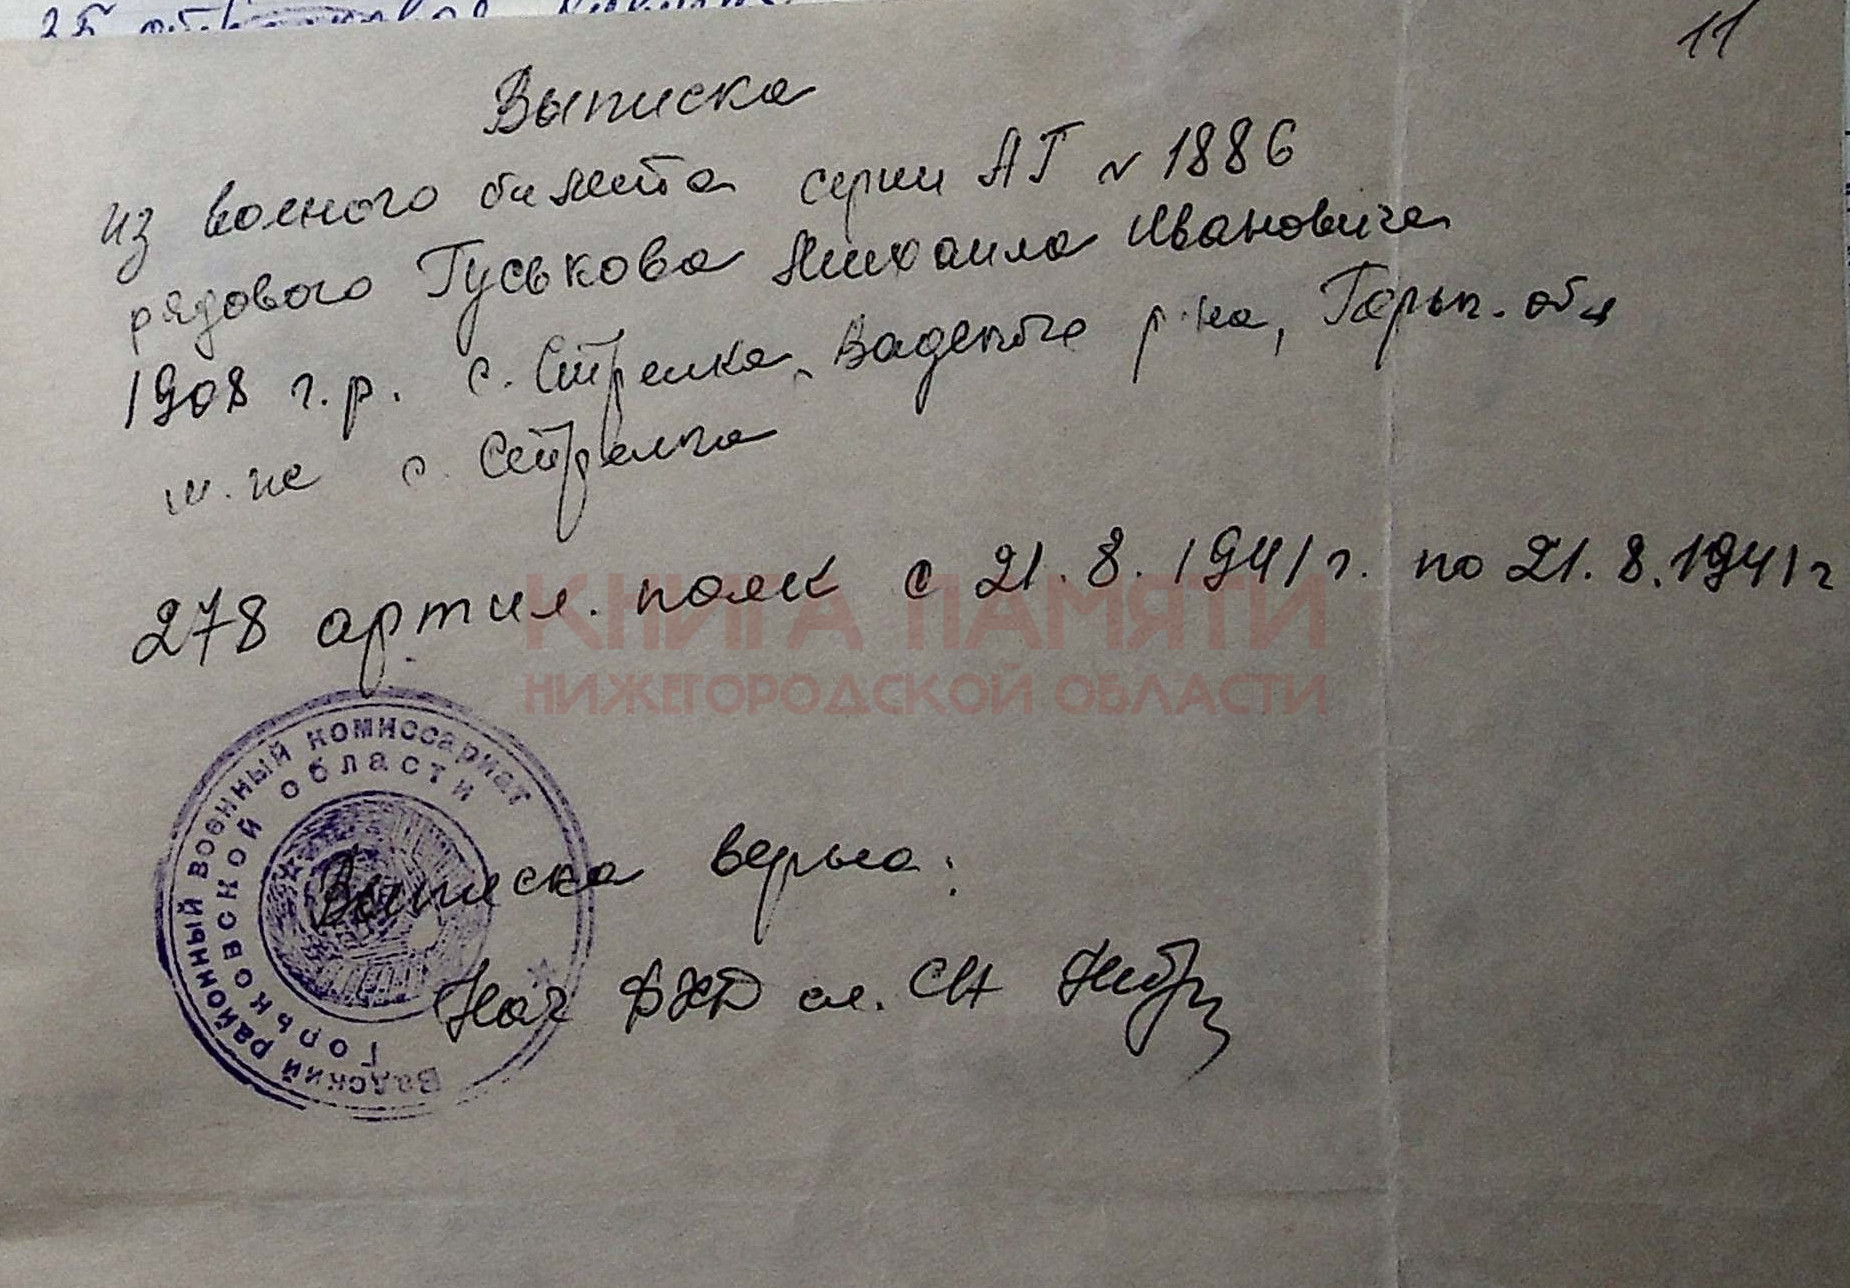 11
Выписка
из военного билета серии АГ № 1886
рядового Гуськова Михаила Ивановича
1908 г.р. с. Стрелка, Вадского р-на, Горьк. обл
м. ж с. Стрелка
278 артил. полк с 21.8.1941 г. по 21.8.1941 г
КНИГА ПАМЯТИ
НИЖЕГОРОДСКОЙ ОБЛАСТИ
Вадский районный военный комиссариат
Горьковской области
Выписка верна:
Нач